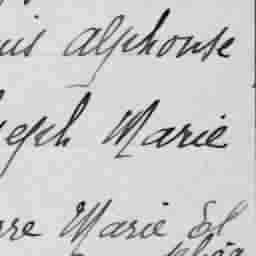 uis Alphonse
seph Marie
rre Marie El